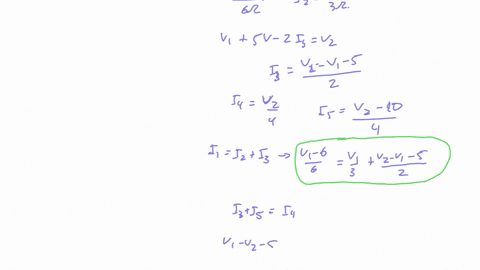 6Ω 3Ω
V₁ + 5V - 2 I₃ = V₂
I₃ = (V₂ - V₁ - 5)/2
I₄ = V₂/4 I₅ = (V₂ - 10)/4
I₁ = I₂ + I₃ → (V₁ - 6)/6 = V₁/3 + (V₂ - V₁ - 5)/2
I₃ + I₅ = I₄
V₁ - V₂ - 5